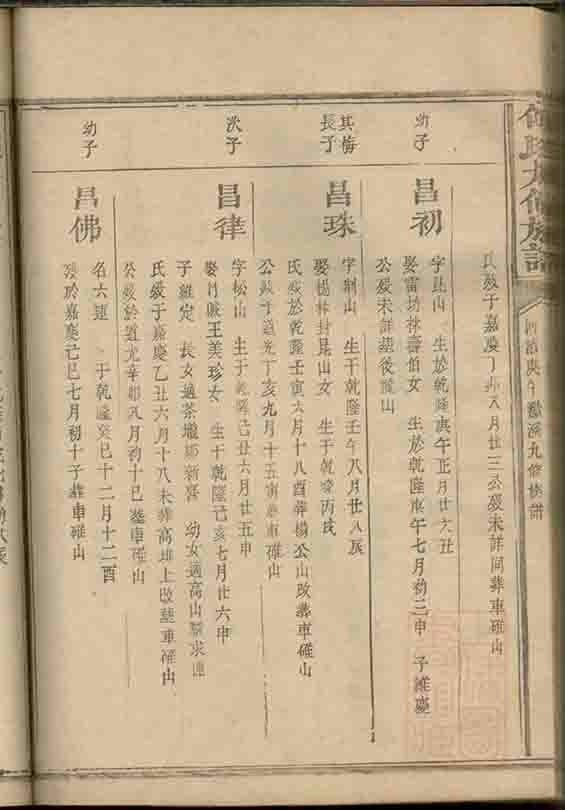 氏歿于嘉慶丁卯八月廿三公歿未詳同葬車碓山
幼子
昌初
字昆山 生於乾隆庚午正月廿六丑
娶雷坊林壽伯女 生於乾隆庚午七月初二申 子維慶
公歿未詳葬後龍山
其梅長子
昌珠
字荆山 生于乾隆壬午八月廿八辰
娶楊林封昆山女 生于乾隆丙戌
氏歿於乾隆壬寅六月十八酉葬楊公山改葬車碓山
公歿于道光丁亥九月十五寅葬車碓山
次子
昌律
字松山 生于乾隆己丑六月廿五申
娶竹陂王美珍女 生于乾隆己亥七月廿六申
子維定 長女適茶壠鄒新喜 幼女適高山黎求連
氏歿于嘉慶乙丑六月十八未葬高堆上改葬車碓山
公歿於道光辛卯八月初十巳葬車碓山
幼子
昌佛
名六連 于乾隆癸巳十二月十二酉
歿於嘉慶己巳七月初十子葬車碓山